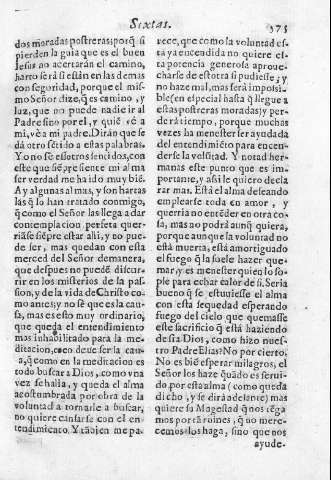 Sixtas. 375
dos moradas postreras: porq̃ si
pierden la guia que es el buen
Iesus no acertarán el camino,
harto será si están en las demas
con seguridad, porque el mis-
mo Señor dize, q̃ es camino, y
luz, que no puede nadie ir al
Padre sino por el, y quiẽ vè a
mi, vè a mi padre. Dirán que se
dá otro sẽtido a estas palabras.
Yo no sè essotros sentidos, con
este que siẽpre siente mi alma
ser verdad me ha ido muy biẽ.
Ay algunas almas, y son hartas
las q̃ lo han tratado conmigo,
q̃ como el Señor las llega a dar
contemplacion perfeta quer-
rianse siẽpre estar alli, y no pue-
de ser, mas quedan con esta
merced del Señor de manera,
que despues no puedẽ discur-
rir en los misterios de la pas-
sion, y de la vida de Christo co-
mo antes; y no sè que es la cau-
sa, mas es esto muy ordinario,
que queda el entendimiento
mas inhabilitado para la me-
ditacion, creo deue ser la causa
, q̃ como en la meditacion es
todo buscar a Dios, como vna
vez se halla, y queda el alma
acostumbrada por obra de la
voluntad a tornarle a buscar,
no quiere cansarse con el en-
tendimiento. Y tãbien me pa-
rece, que como la voluntad es-
tá ya encendida no quiere es-
ta potencia generosa aproue-
charse de estotra si pudiesse; y
no haze mal, mas será impossi-
ble (en especial hasta q̃ llegue a
estas postreras moradas) y per-
derá tiempo, porque muchas
vezes ha menester ser ayudada
del entendimiẽto para encen-
derse la volũtad. Y notad her-
manas este punto que es im-
portante, y assi le quiero decla-
rar mas. Està el alma deseando
emplearse toda en amor, y
querria no entẽder en otra co-
sa, mas no podrá aunq̃ quiera,
porque aunque la voluntad no
està muerta, està amortiguado
el fuego q̃ la suele hazer que-
mar, y es menester quien lo so-
ple para echar calor de si. Seria
bueno q̃ se estuuiesse el alma
con esta sequedad esperando
fuego del cielo que quemasse
este sacrificio q̃ está haziendo
de si a Dios, como hizo nues-
tro Padre Elias? No por cierto.
No es biẽ esperar milagros, el
Señor los haze quãdo es serui-
do por esta alma (como queda
dicho, y se dirá adelante) mas
quiere su Magestad q̃ nos tẽga
mos por tã roines, q̃ no mere-
cemos los haga, sino que nos
ayude-